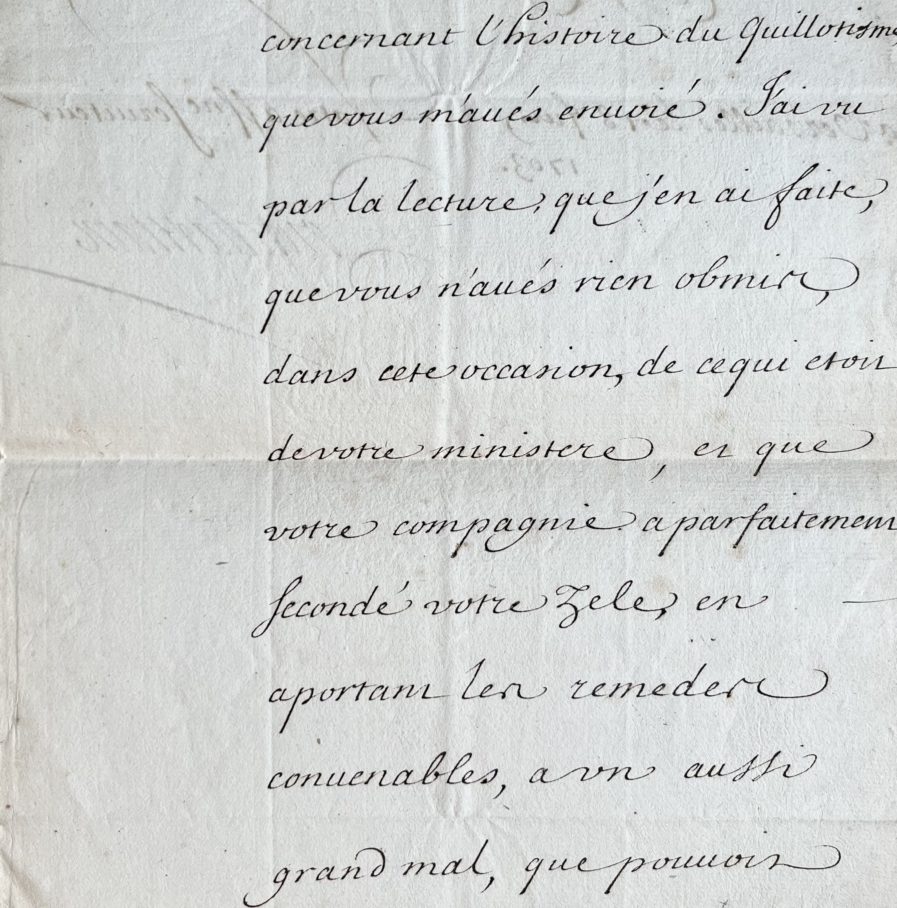 concernant l'histoire du Quillotisme
que vous m'aués enuoié. J'ai vu
par la lecture, que j'en ai faite,
que vous n'aués rien obmis,
dans cete occasion, de ce qui etoit
de votre ministere, et que
votre compagnie a parfaitement
secondé votre Zele, en
aportant les remedes
conuenables, a vn aussi
grand mal, que pouuoit
1703.